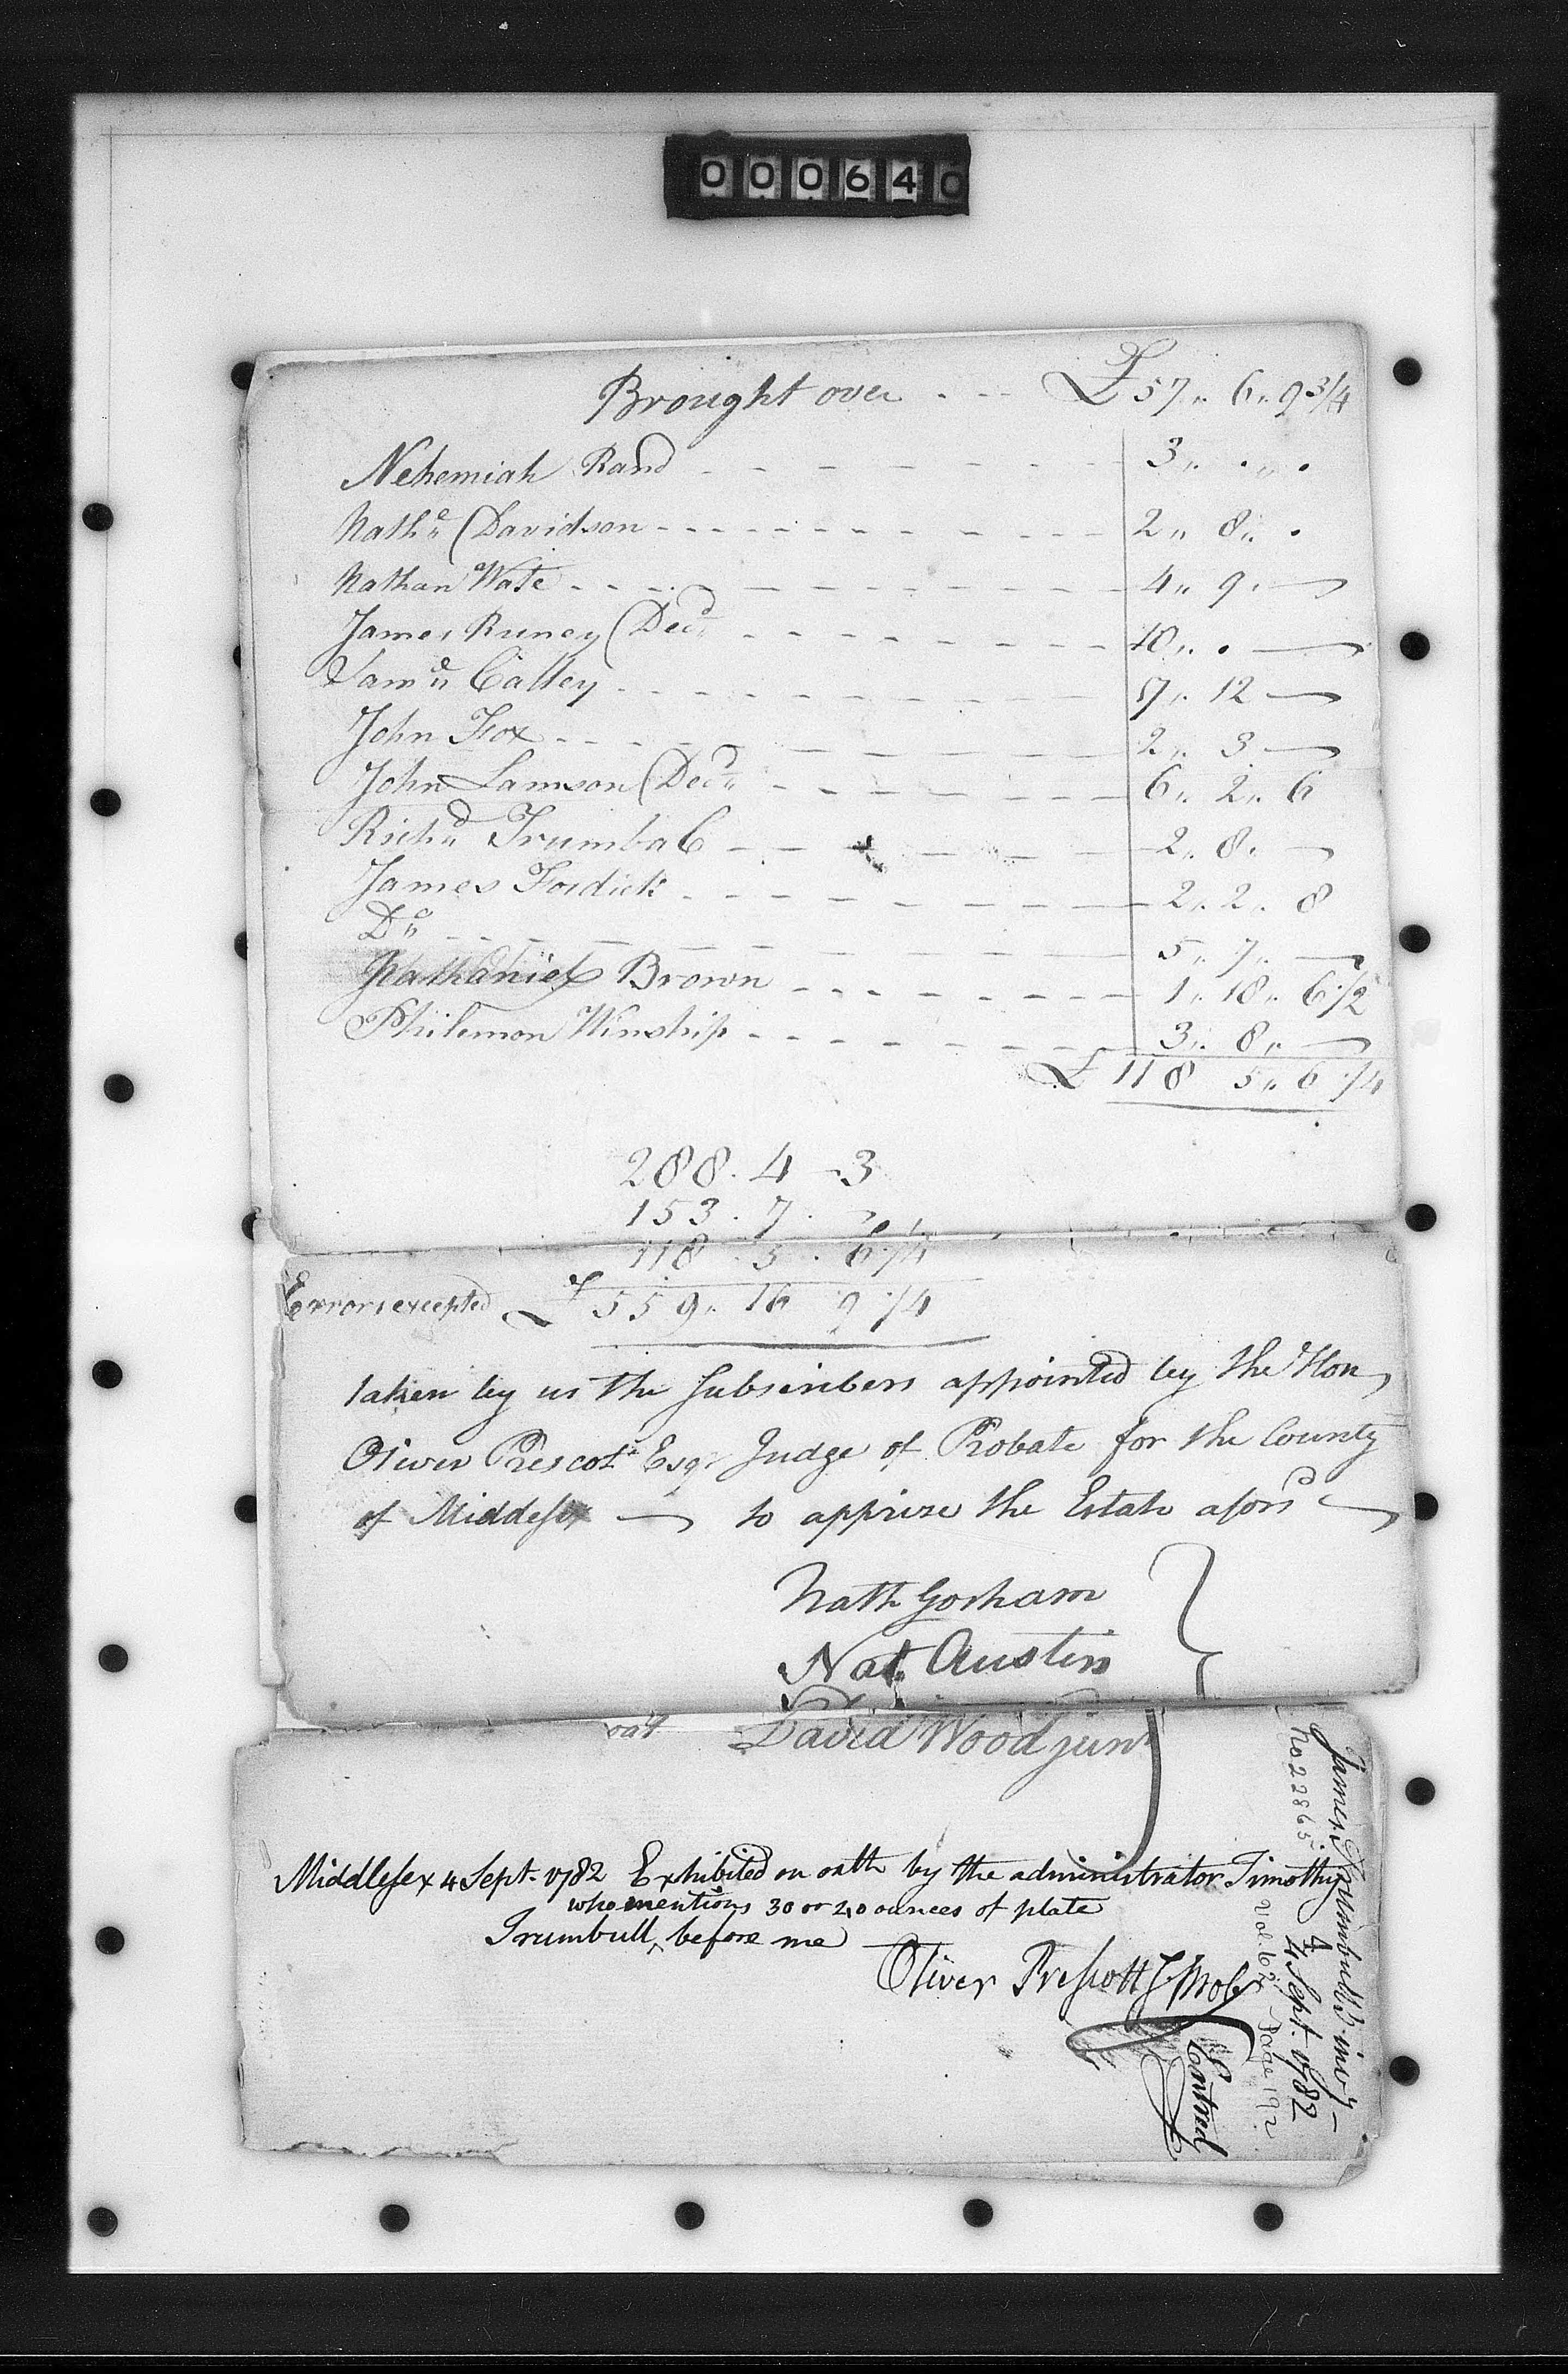 000640
Brought over - - - £57,, 6,, 9 3/4
Nehemiah Rand - - - 3,, . ,, .
Nathll Davidson - - - 2,, 8,, .
Nathan Wate - - - 4,, 9,, —
James Runey Decd - - - 18,, . —
Samll Calley - - - 7,, 12 —
John Fox - - - 2,, 3 —
John Lamson Decd - - - 6,, 2,, 6
Richd Trumbal - - - 2,, 8,, —
James Fosdick - - - 2,, 2,, 8
Do - - - 5,, 7,, —
Nathaniel Brown - - - 1,, 18,, 6 1/2
Philemon Winship - - - 3,, 8,, —
£ 118 5,, 6 1/4
288. 4 - 3
153. 7. —
118. 5. 6 1/4
Errors excepted £559,, 16 9 1/4
taken by us the Subscribers appointed by the Hon,
Oliver Prescot Esqr Judge of Probate for the County
of Middesex — to apprize the Estate aforsd —
Nath Gorham
Nat. Austin
David Wood junr
Middlesex 4 Sept. 1782 Exhibited on oath by the administrator Timothy
who mentions 30 or 20 ounces of plate
Trumbull ^ before me
Oliver Prescott J Prob
James Trumbull's invy —
4 Sept. 1782
No 22865
Vol. 62 Page 192
Entred